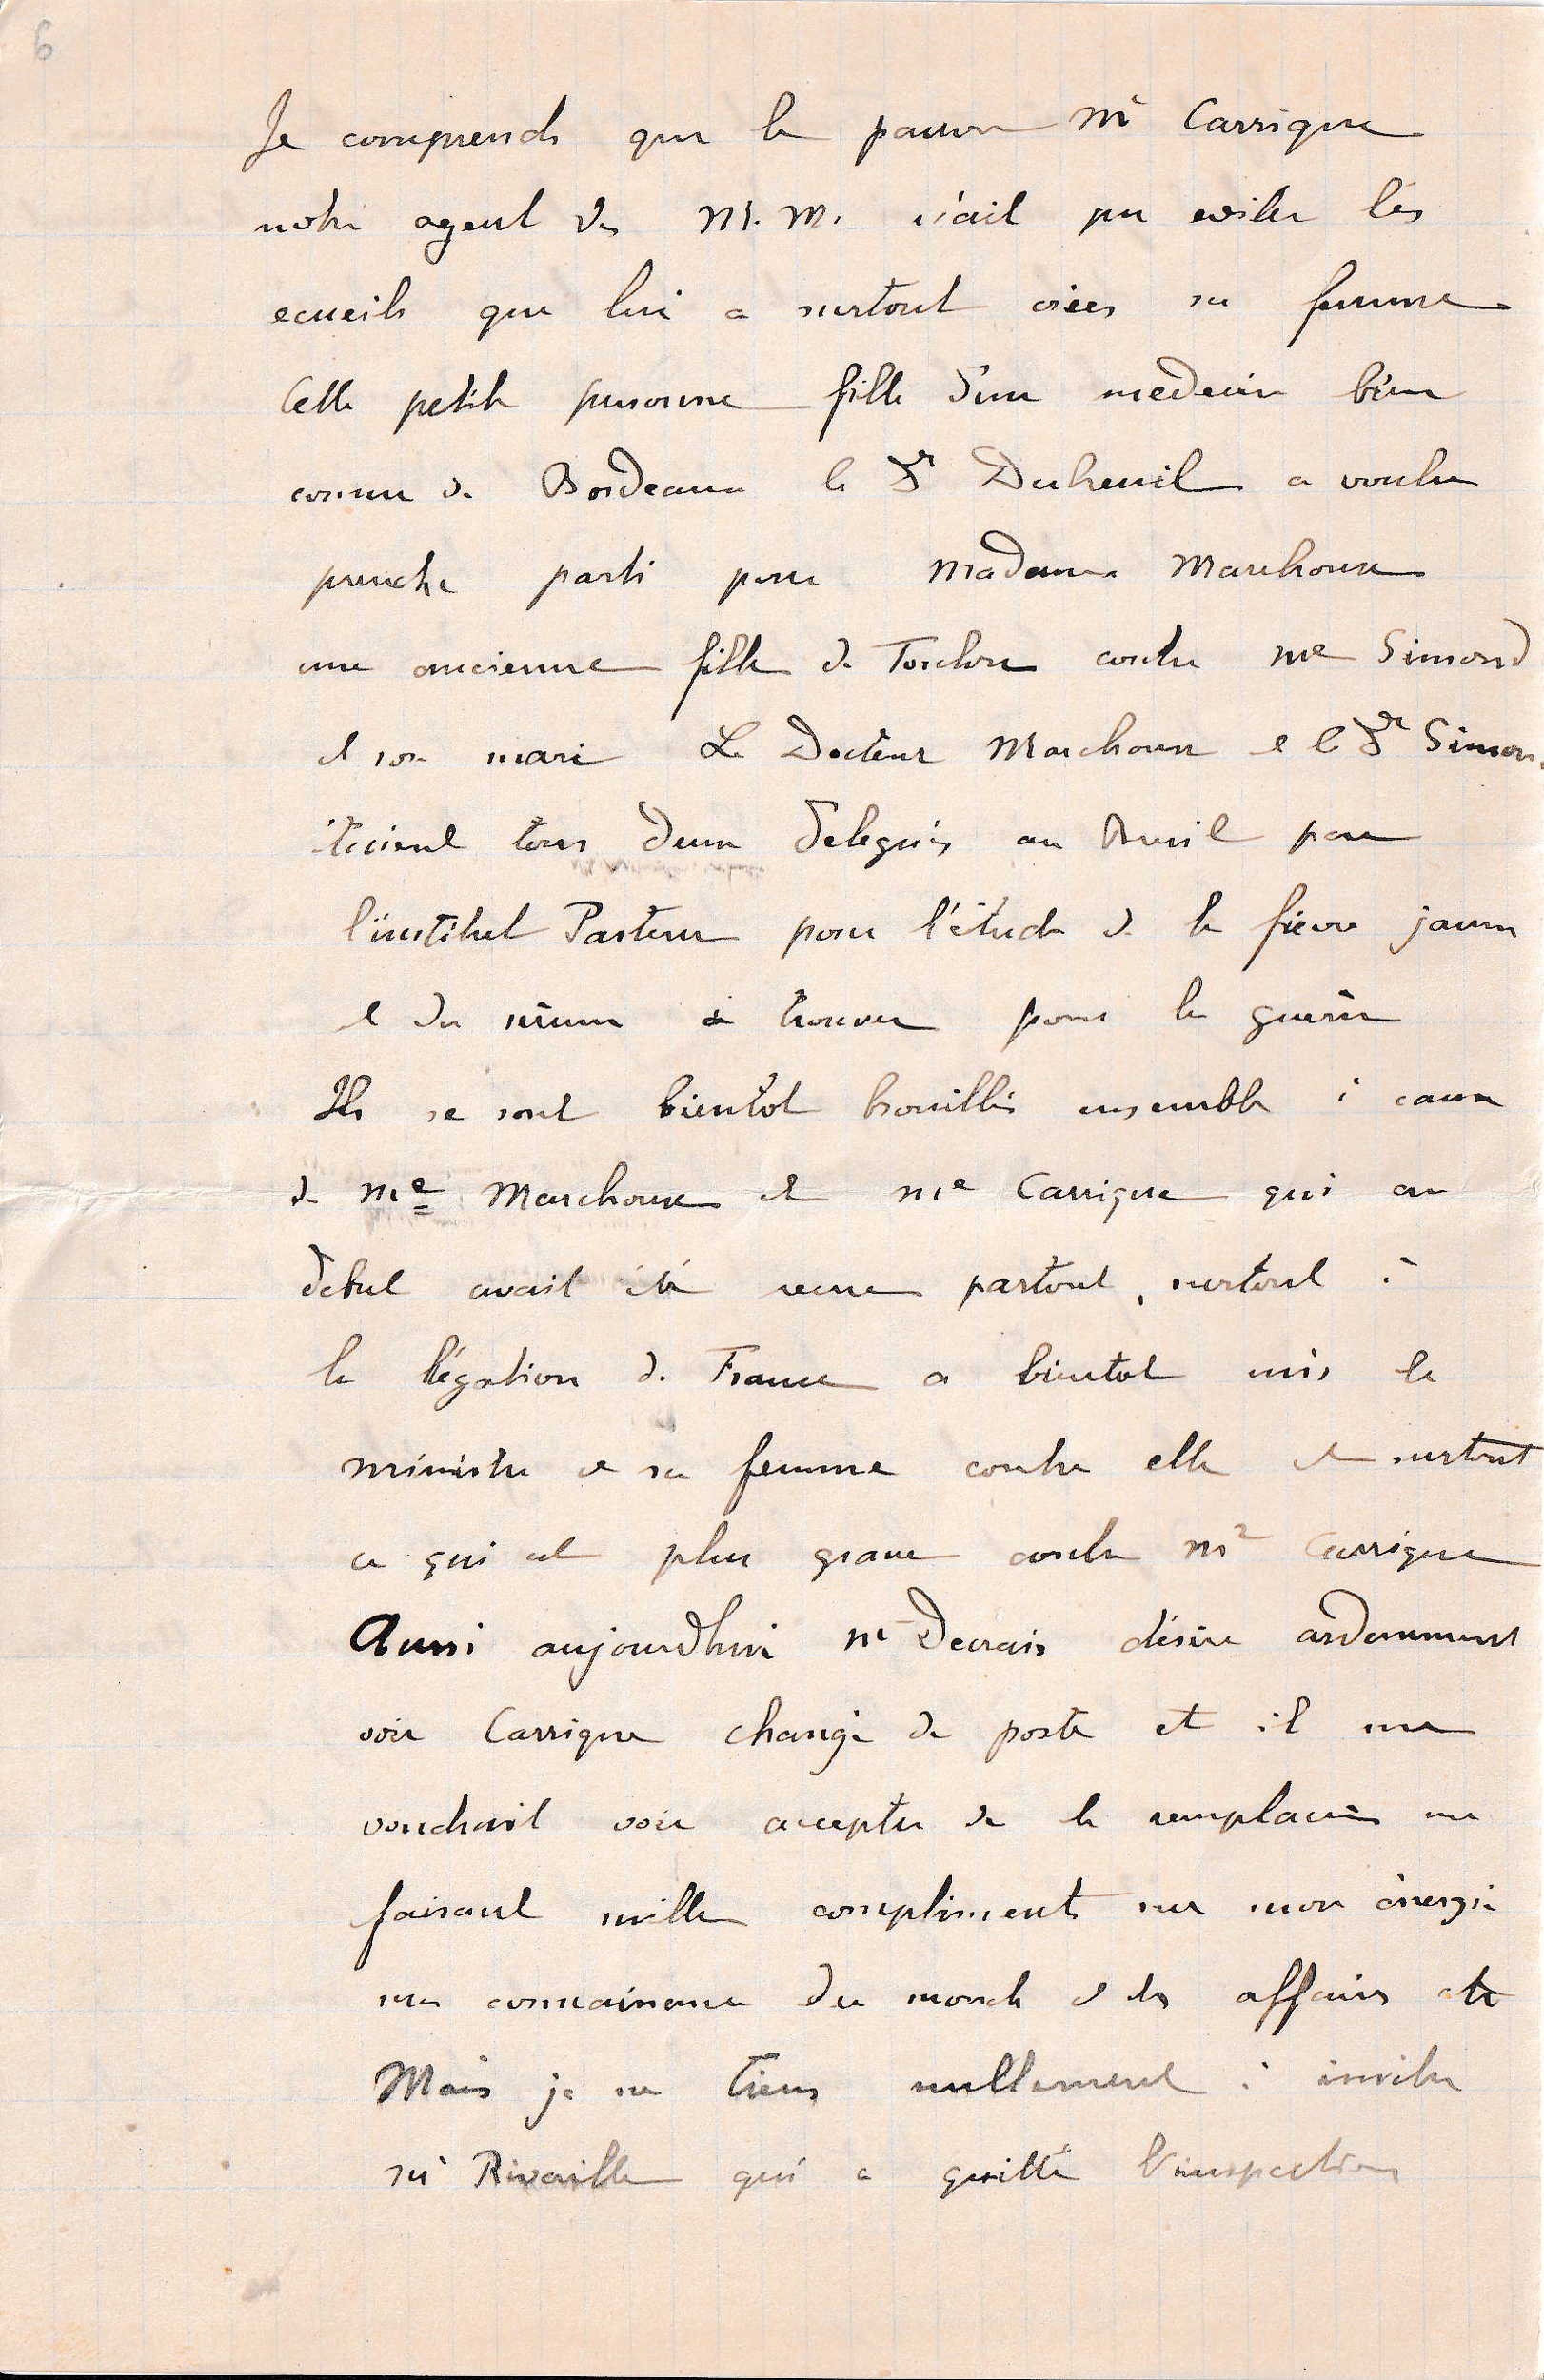 6
Je comprends que le pauvre Mr Carrigue
notre agent des M. M. n'ait pu eviter les
ecueils que lui a surtout créés sa femme
Cette petite personne fille d'un medecin bien
connu de Bordeaux le Dr Dubreuil a voulu
prendre parti pour Madame Marchoux
une ancienne fille de Toulon contre Me Simond
et son mari Le Docteur Marchoux et le Dr Simon
étaient tous deux delegués au Bresil par
l'institut Pasteur pour l'étude de la fievre jaune
et du sérum à trouver pour la guérir
Ils se sont bientot brouillés ensemble à cause
de Me Marchoux et Me Carrigue qui au
debut avait été reçue partout, surtout à
la légation de France a bientot mis le
ministre et sa femme contre elle et surtout
ce qui est plus grave contre Mr Carrigue
Aussi aujourdhui Mr Decrais désire ardemment
voir Carrigue changé de poste et il me
voudrait voir accepter de le remplacer me
faisant mille compliments sur mon énergie
ma connaissance du monde et des affaires etc
Mais je ne tiens nullement à imiter
Mr Rivaille qui a quitté l'inspection